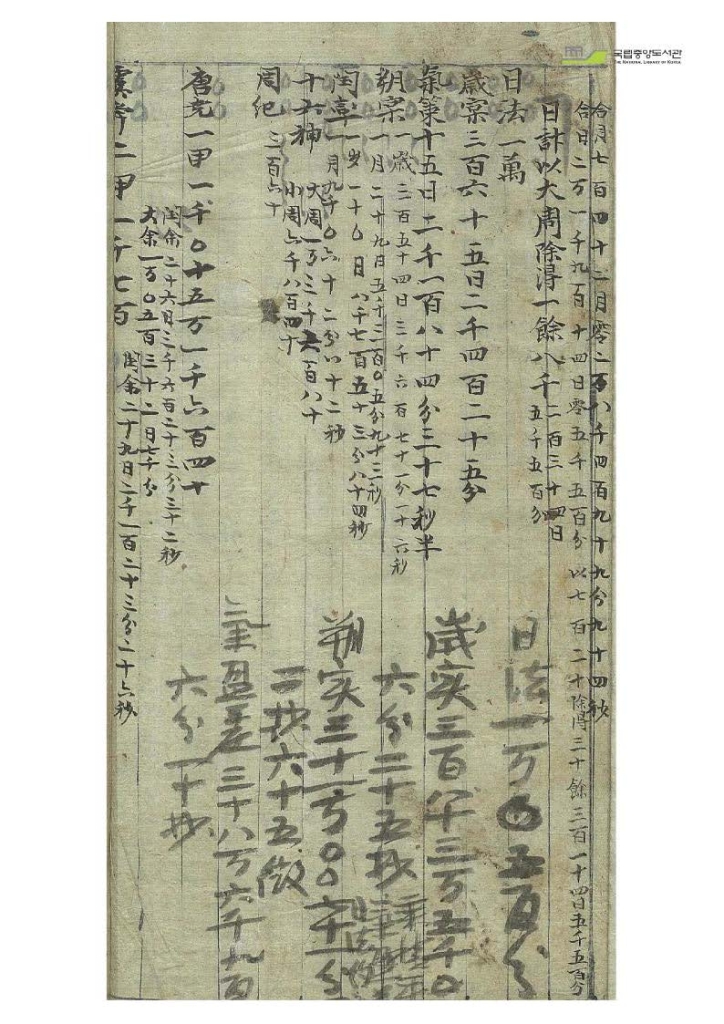 국립중앙도서관
THE NATIONAL LIBRARY OF KOREA
合月七百四十二月零二百八千四百九十九分九十四秒
合日二万一千九百十四日零五千五百分 以七百二十除得三十餘三百一十四日五千五百分
日計以大周除得一餘八千二百三十四日五千五百分
日法一萬
歲実三百六十五日二千四百二十五分
氣策十五日二千一百八十四分三十七秒半
朔実一歲三百五十四日三千六百七十一分一十六秒
一月二十九日五千三百0五分九十三秒
閏章一岁一十0日八千七百五十三分八十四秒
一月九千0六十二分八十二秒
十六神 大周一万三千六百八十
小周六千八百四十
周紀三百六十
唐堯一甲一千0十五万一千六百四十
閏余二十六日三千六百二十三分三十二秒
大余一万0五百三十二日七千分
二甲一千七百
閏余二十九日二千一百二十三分二十六秒
日法一万0五百分
歲实三百八十三万五千0
六分二十五抄
朔实三十一万00六十一分
二抄六十五微
氣盈差三十八万六千九百
六分一十抄